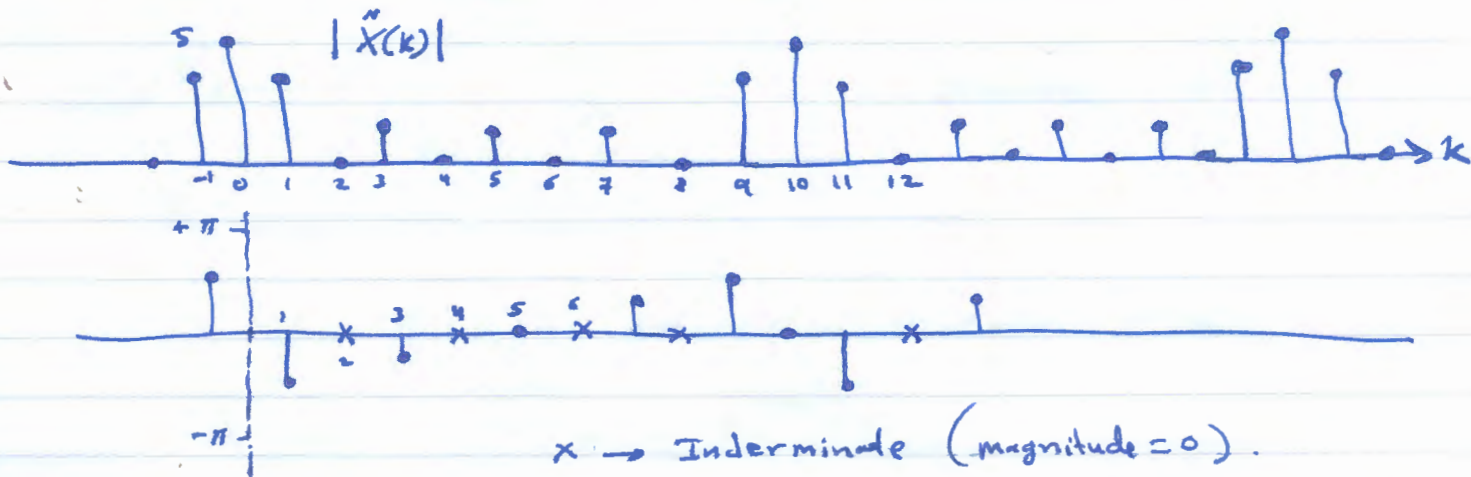 5 | X̃(k) |
-1 0 1 2 3 4 5 6 7 8 9 10 11 12 k
+π
1 2 3 4 5 6
-π
x → Inderminate (magnitude = 0).